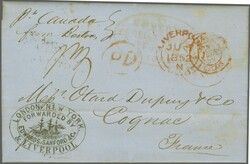 p. Canada
from Boston
PD
LIVERPOOL
JU
1852
Messrs Otard Dupuy & Co
Cognac
France
LONDON & NEW YORK
FORWARDED BY
EDWARDS, SANFORD & CO
LIVERPOOL